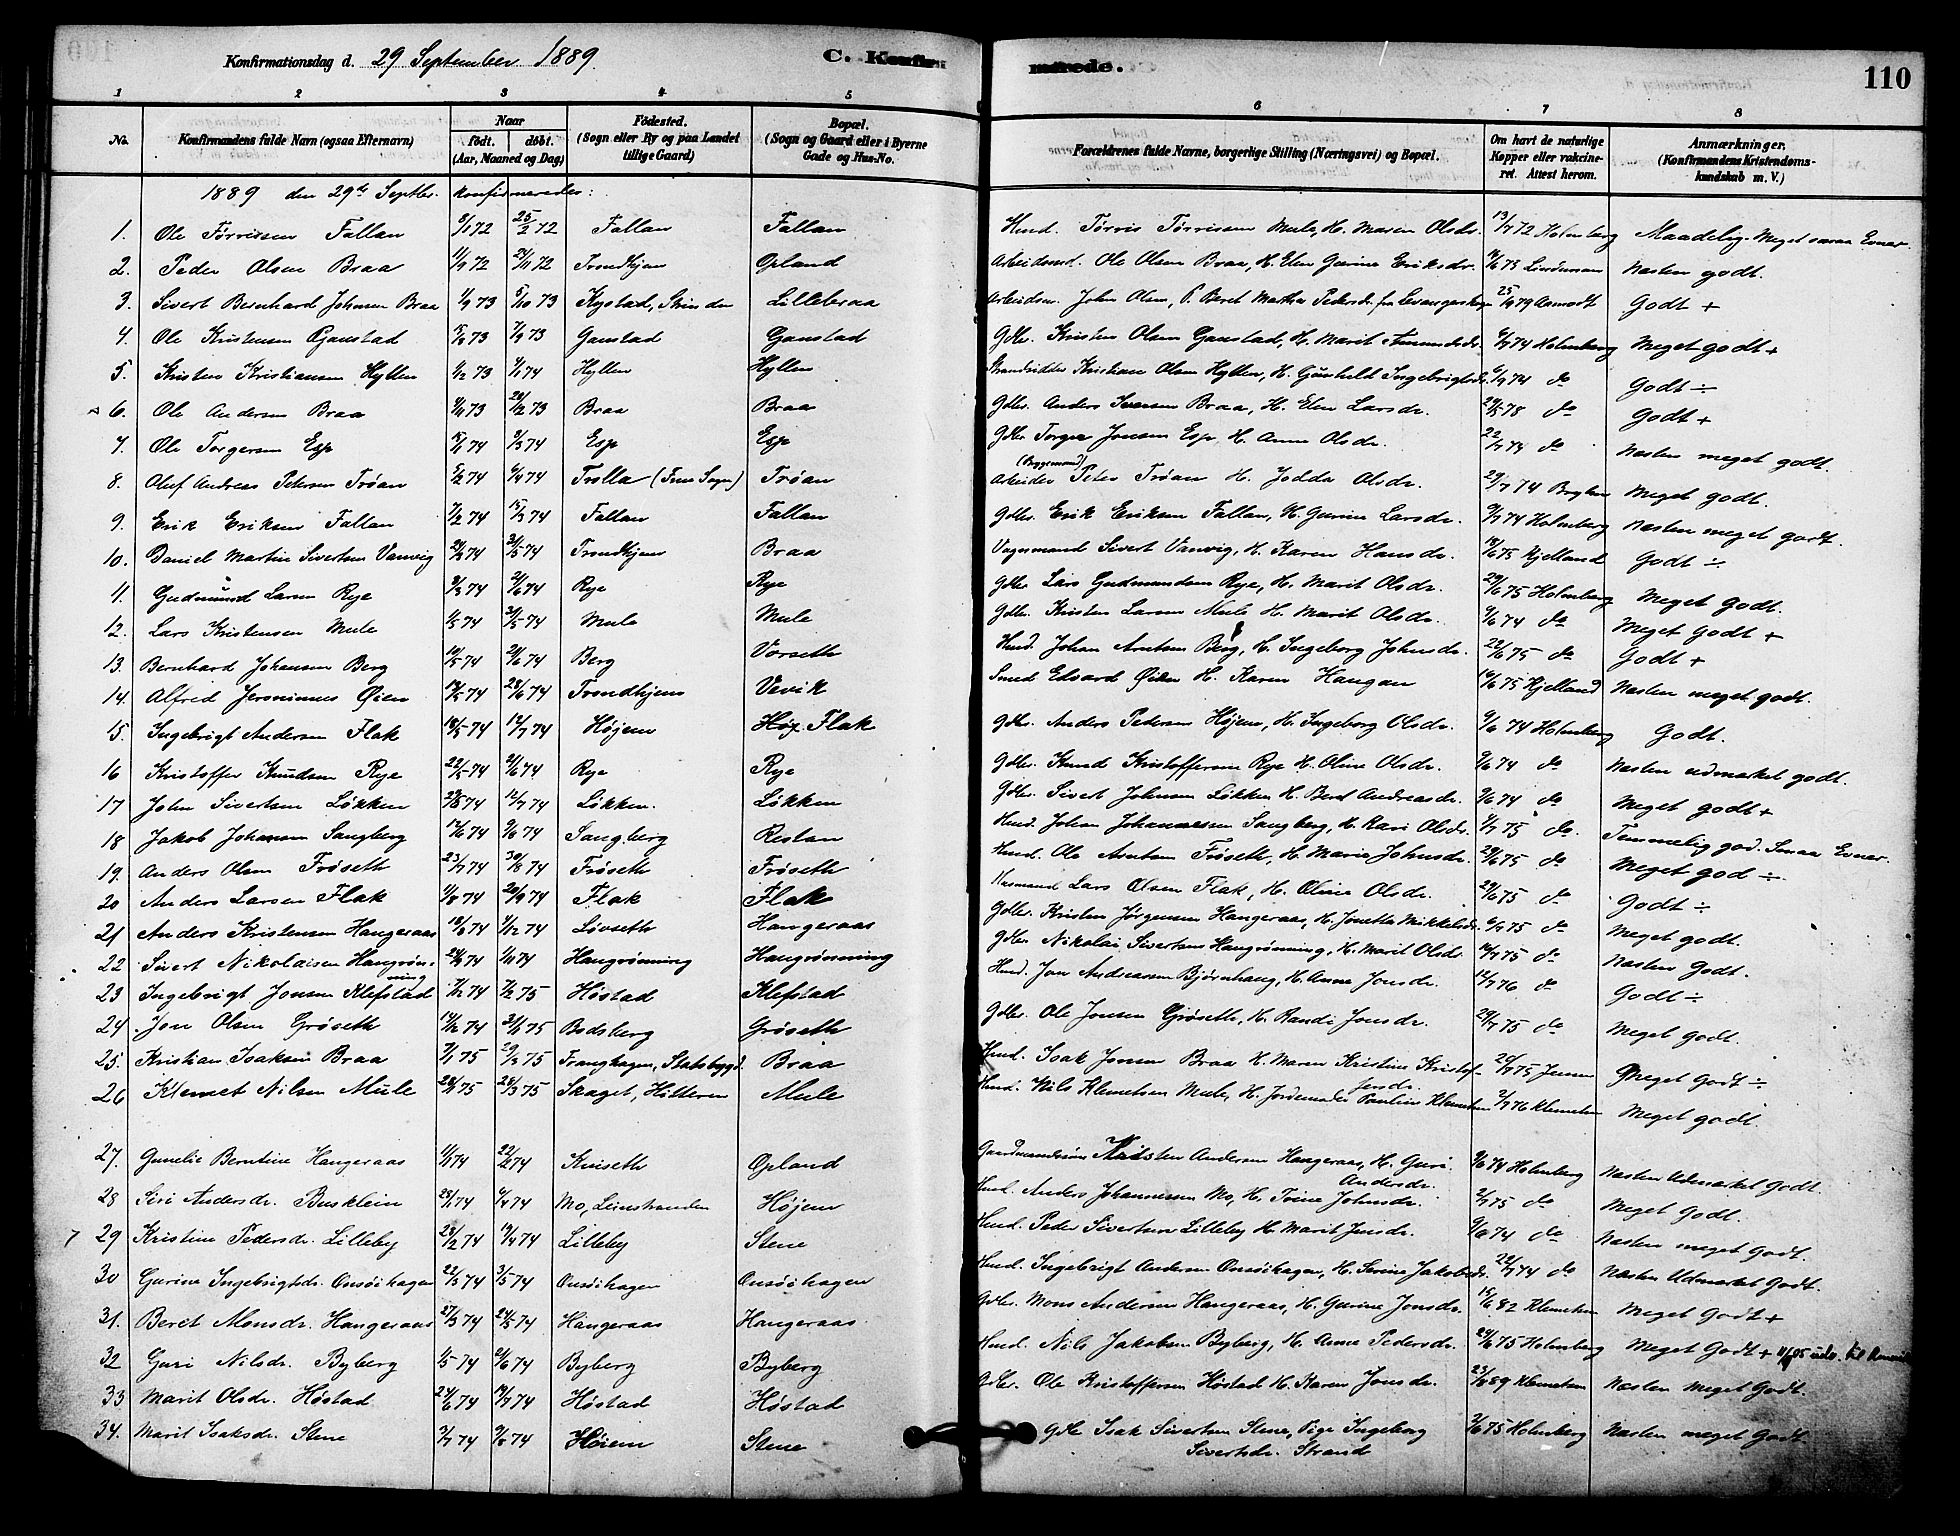 Konfirmationsdag d. 29 September 1889. C. Konfirmerede. 110
1 2 3 4 5 6 7 8
No. Konfirmandens fulde Navn (ogsaa Efternavn) Naar født. døbt. (Aar, Maaned og Dag) Fødested. (Sogn eller By og paa Landet tillige Gaard) Bopæl. (Sogn og Gaard eller i Byerne Gade og Hus-No. Forældrenes fulde Navne, borgerlige Stilling (Næringsvei) og Bopæl. Om havt de naturlige Kopper eller vakcineret. Attest herom. Anmærkninger. (Konfirmandens Kristendomskundskab m. V.)
1889 den 29de Septbr. konfirmeredes:
1. Ole Tørrissen Fallan 72 25/2 72 Fallan Fallan Husmd. Tørris Tørrissen Mule, H. Maren Olsdr. 13/7 72 Holmberg Maadelig. Meget smaa Evner.
2. Peder Olsen Braa 72 72 Trondhjem Opland Arbeidsmd. Ole Olsen Braa, H. Elen Gurine Eriksdr. 73 Lindeman Næsten godt.
3. Sivert Bernhard Johnsen Braa 1/9 73 5/10 73 Kystad, Strinden Lillebraa Arbeidsm. John Olsen, P. Beret Martha Pedersdr. fra Levangerskogn 25/9 79 Aamodt Godt +
4. Ole Kristensen Gaustad 73 7/9 73 Gaustad Gaustad Gdbr. Kristen Olsen Gaustad, H. Marit Amundsdr. 74 Holmberg Meget godt +
5. Kristen Kristiansen Hyllen 1/12 73 1/1 74 Hyllen Hyllen Strandsidder Kristian Olsen Hyllen, H. Gunhild Ingebrigtsdr. 74 do Godt ÷
6. Ole Andersen Braa 73 73 Braa Braa Gdbr. Anders Iversen Braa, H. Elen Larsdr. 29/5 78 do Godt +
7. Ole Torgersen Esp 74 74 Esp Esp Gdbr Torger Jonsen Esp, H. Anne Olsdr. 22/7 74 do Næsten meget godt.
8. Oluf Andreas Petersen Trøan 74 74 Trolla (Frue Sogn) Trøan Arbeider (Byggemand) Peter Trøan H. Jodda Olsdr. 29/7 74 Meget godt.
9. Erik Eriksen Fallan 7/2 74 15/3 74 Fallan Fallan Gdbr. Erik Eriksen Fallan, H. Gurine Larsdr. 74 Holmberg Næsten meget godt.
10. Daniel Martin Sivertsen Vanvig 74 31/5 74 Trondhjem Braa Vognmand Sivert Vanvig, H. Karen Hansdr. 75 Kjelland Godt ÷
11. Gudmund Larsen Rye 74 74 Rye Rye Gdbr. Lars Gudmundsen Rye, H. Marit Olsdr. 29/6 75 Holmberg Meget godt.
12. Lars Kristensen Mule 1/5 74 31/5 74 Mule Mule Gdbr. Kristen Larsen Mule H. Marit Olsdr. 9/6 74 do Meget godt +
13. Bernhard Johansen Berg 74 74 Berg Vorseth Husd. Johan Arntsen Berg, H. Ingeborg Johnsdr. 22/6 75 do Godt +
14. Alfred Jeronimus Øien 74 28/6 74 Trondhjem Vevik Smed Edvard Øien H. Karen Haugan 75 Kjelland Næsten meget godt.
15. Ingebrigt Andersen Flak 18/5 74 74 Høiem Høj. Flak Gdbr. Anders Pedersen Høiem, H. Ingeborg Olsdr. 9/6 74 Holmberg Godt.
16 Kristoffer Knudsen Rye 22/5 74 21/6 74 Rye Rye Gdbr. Knud Kristoffersen Rye H. Oline Olsdr. 9/6 74 do Næsten udmærket godt.
17 John Sivertsen Løkken 74 12/7 74 Løkken. Løkken Gdbr. Sivert Johnsen Løkken H. Beret Andreasdr. 9/6 74 do Meget godt +
18 Jakob Johansen Sangberg 74 74 Sangberg Restan Husd. Johan Johannessen Sangberg, H. Kari Olsdr. 75 do. Temmelig god. Smaa Evner.
19. Anders Olsen Frøseth 23/7 74 30/8 74 Frøseth Frøseth Husd. Ole Arntsen Frøseth, H. Marie Johnsdr. 29/6 75 do Meget god ÷
20 Anders Larsen Flak 74 20/9 74 Flak Flak Husmand Lars Olsen Flak, H. Oline Olsdr. 75 do Godt ÷
21 Anders Kristensen Hangeraas 74 74 Løvseth Hangeraas Gdbr. Kristen Jørgensen Hangeraas, H. Jonetta Mikkelsdr. 75 do Meget godt.
22 Sivert Nikolaisen Haugrønning 74 74 Haugrønning Haugrønning Gdbr. Nikolai Sivertsen Haugrønning, H. Marit Olsdr. 75 do Næsten Godt.
23 Ingebrigt Jonsen Klefstad 74 75 Høstad Klefstad Husd. Jon Andreassen Bjørnhaug, H. Anne Jonsdr. 76 do Godt ÷
24 Jon Olsen Grøseth 74 75 Bodsberg Grøseth Gdbr. Ole Jonsen Grøseth, H. Randi Jonsdr. 29/7 75 do Meget godt.
25. Kristian Isaksen Braa 75 75 Franghagen, Statsbygd. Braa Husd. Isak Jonsen Braa H. Maren Kristine Kristoffersdr. 75 Jensen Meget godt ÷
26 Klemet Nilsen Mule 75 75 Skaget, Hitteren Mule Husd. Nils Klemetsen Mule, H. Jordemoder Pauline Klemetsen 76 Klemetsen Meget godt.
27. Gunelie Berntine Hangeraas 74 22/2 74 Kuiseth Opland Gaardmandssøn Kristen Andersen Hangeraas, H. Guri Andersdr. 9/6 74 Holmberg Næsten Udmærket Godt.
28 Siri Andersdr. Busklein 74 74 Mo, Leinstranden Høiem Husd. Anders Johannessen Mo, H. Trine Johnsdr. 75 do Meget Godt.
29 Kristine Pedersdr. Lilleby 23/2 74 19/4 74 Lilleby Stene Husd. Peder Sivertsen Lilleby H. Marit Jensdr. 9/6 74 do Næsten meget Godt.
30 Gurine Ingebrigtsdr. Onsöihagen 22/3 74 3/5 74 Onsöihagen Onsöihagen Husd. Ingebrigt Andersen Onsöihagen, H. Serine Jakobsdr. 22/7 74 do Næsten Udmærket Godt.
31. Beret Monsdr. Hangeraas 27/3 74 24/5 74 Hangeraas Hangeraas. Gdbr. Mons Andersen Hangeraas, H. Gurine Jonsdr. 82 Klemetsen Meget Godt +
32 Guri Nilsdr. Byberg 1/5 74 21/6 74 Byberg Byberg Husd. Nils Jakobsen Byberg, H. Anne Pedersdr. 75 Holmberg Meget Godt + 05 udv. til
33 Marit Olsdr. Høstad 74 19/7 74 Høstad Høstad Gdbr. Ole Kristoffersen Høstad H. Karen Jonsdr. 89 Klemetsen Næsten Meget Godt.
34. Marit Isaksdr. Stene 74 74 Høiem Stene Gdbr Isak Sivertsen Stene, Pige Ingeborg Sivertsdr. Strand 75 Holmberg Næsten meget Godt